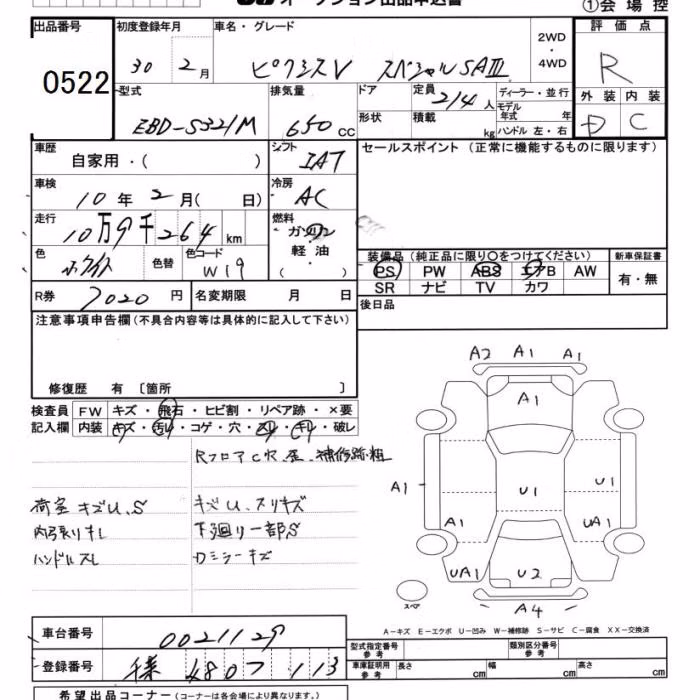 オークション出品申込書
①会場控
出品番号
0522
初度登録年月
30 2月
車名・グレード
ピクシスV スペシャルSAⅢ
2WD
・
4WD
評価点
R
外装 内装
D C
型式
EBD-S321M
排気量
650 cc
ドア
形状
定員
2/4人
積載
kg
ディーラー・並行
モデル
年式 年
ハンドル 左・右
車歴
自家用・( )
シフト
IAT
セールスポイント (正常に機能するものに限ります)
車検
10年2月( 日)
冷房
AC
走行
10万9千264km
燃料
ガソリン
・
軽油
・
( )
色
ホワイト
色替
色コード
W19
装備品 (純正品に限り○をつけてください)
PS PW ABS エアB AW
SR ナビ TV カワ
新車保証書
有・無
R券
7020円
名変期限 月 日
後日品
注意事項申告欄 (不具合内容等は具体的に記入して下さい)
修復歴 有 〔箇所 〕
検査員
記入欄
FW キズ・飛石・ヒビ割・リペア跡・×要
内装 キズ・汚れ・コゲ・穴・スレ・キレ・破レ
RフロアC穴、歪、補修跡粗
荷室キズU、S
キズU、スリキズ
内張りキレ
下廻り一部S
ハンドルスレ
Dミラーキズ
A2 A1 A1
A1
A1
U1
U1
A1
A1
UA1
UA1
U2
A4
スペア
A-キズ E-エクボ U-凹み W-補修跡 S-サビ C-腐食 XX-交換済
車台番号
0021129
登録番号
千葉 480 フ 113
型式指定番号
参考
類別区分番号
参考
車庫証明用
参考
長さ cm
幅 cm
高さ cm
希望出品コーナー (コーナーは各会場により異なります。)